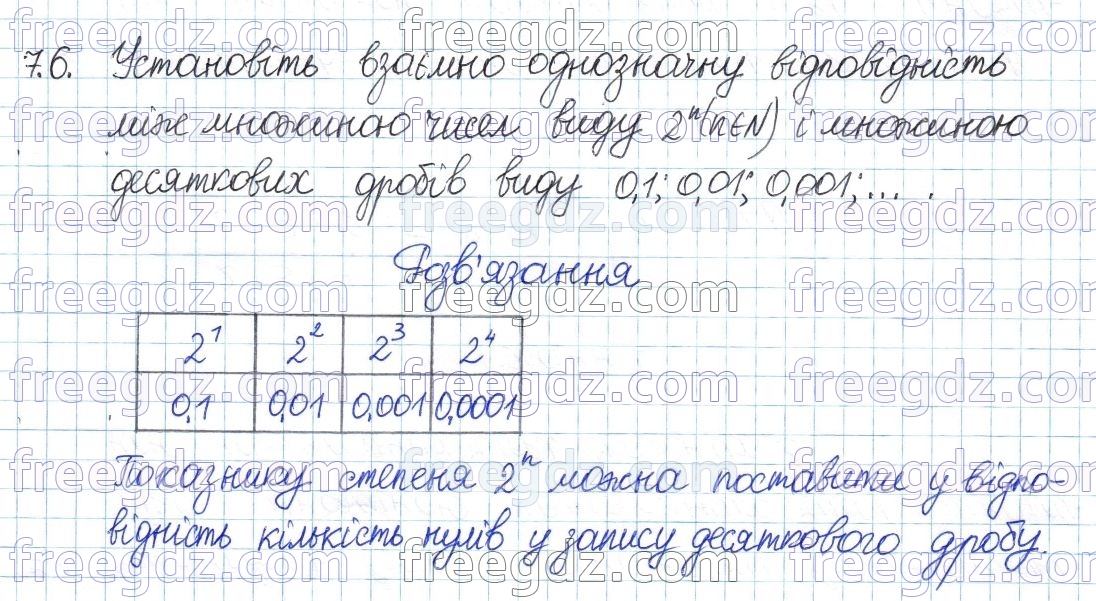 7.6. Установіть взаємно однозначну відповідність
між множиною чисел виду 2ⁿ(n∈N) і множиною
десяткових дробів виду 0,1; 0,01; 0,001; ... .
Розв'язання
2¹ 2² 2³ 2⁴
0,1 0,01 0,001 0,0001
Показнику степеня 2ⁿ можна поставити у відпо-
відність кількість нулів у запису десяткового дробу.
freegdz.com